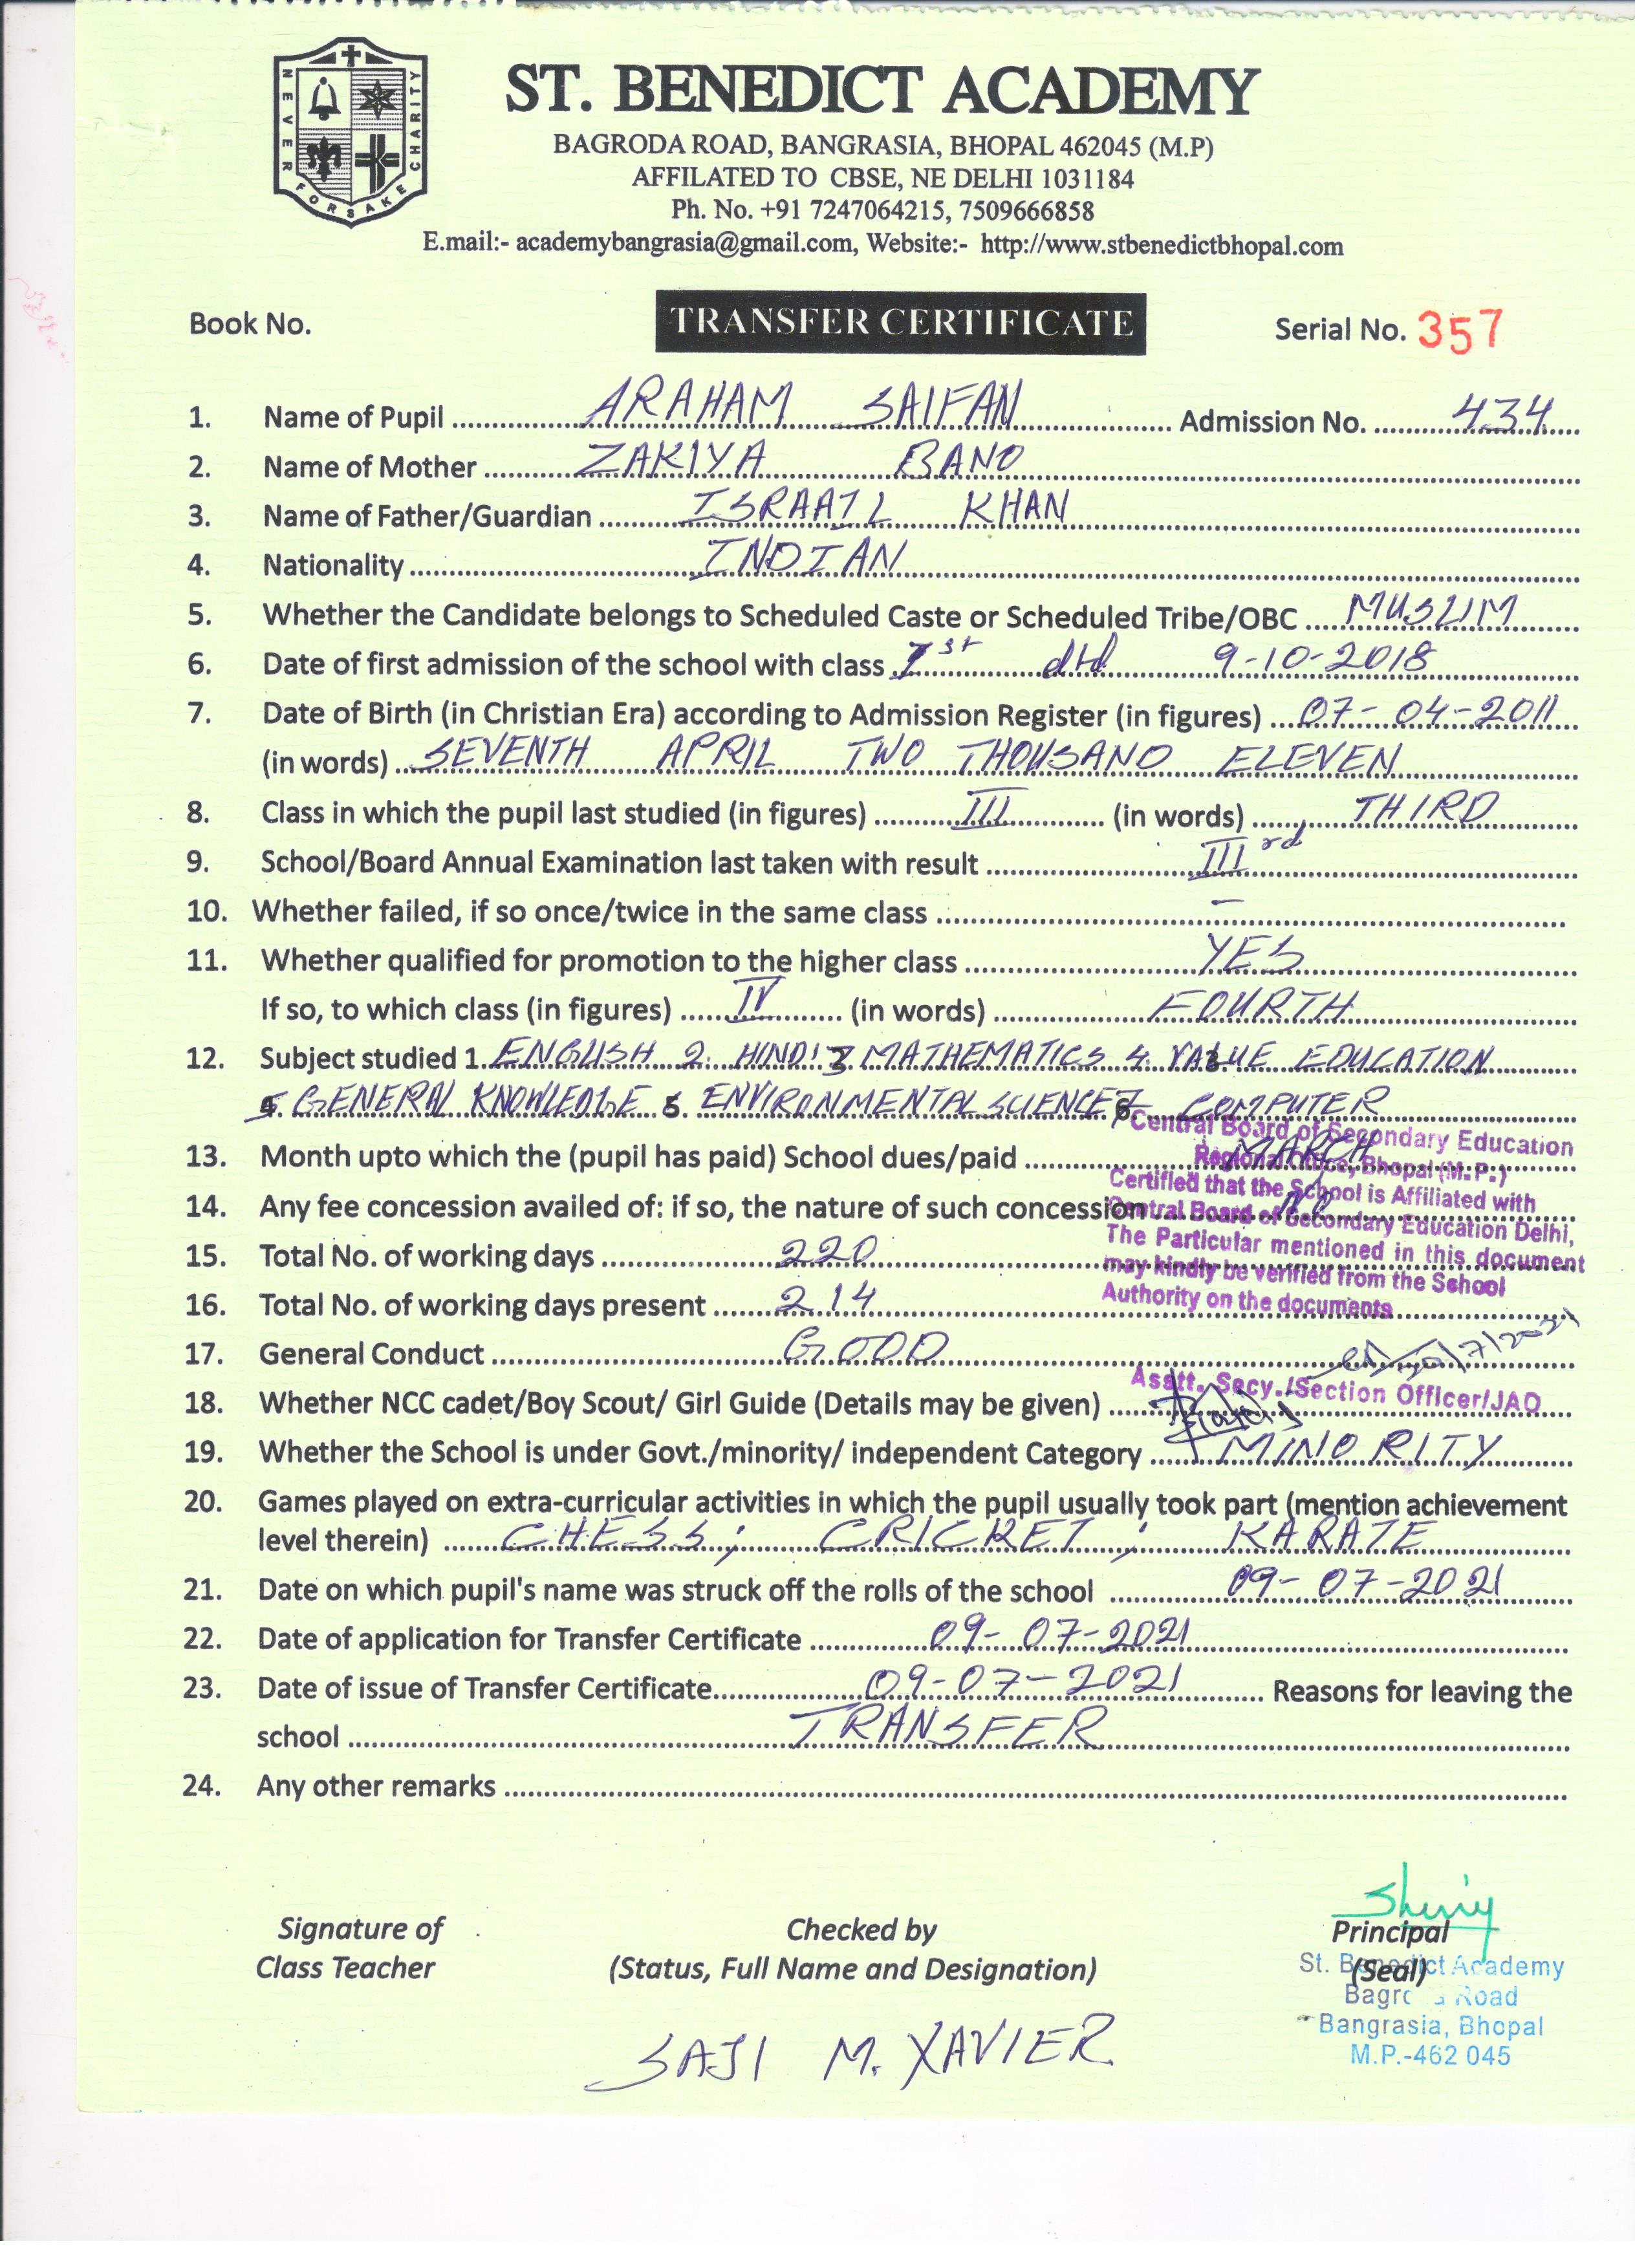 NEVER FORSAKE CHARITY
ST. BENEDICT ACADEMY
BAGRODA ROAD, BANGRASIA, BHOPAL 462045 (M.P)
AFFILATED TO CBSE, NE DELHI 1031184
Ph. No. +91 7247064215, 7509666858
E.mail:- academybangrasia@gmail.com, Website:- http://www.stbenedictbhopal.com
Book No. TRANSFER CERTIFICATE Serial No. 357
1. Name of Pupil ARAHAM SAIFAN Admission No. 434
2. Name of Mother ZAKIYA BANO
3. Name of Father/Guardian ISRAAIL KHAN
4. Nationality INDIAN
5. Whether the Candidate belongs to Scheduled Caste or Scheduled Tribe/OBC MUSLIM
6. Date of first admission of the school with class Ist dtd 9-10-2018
7. Date of Birth (in Christian Era) according to Admission Register (in figures) 07-04-2011
(in words) SEVENTH APRIL TWO THOUSAND ELEVEN
8. Class in which the pupil last studied (in figures) III (in words) THIRD
9. School/Board Annual Examination last taken with result III rd
10. Whether failed, if so once/twice in the same class –
11. Whether qualified for promotion to the higher class YES
If so, to which class (in figures) IV (in words) FOURTH
12. Subject studied 1. ENGLISH 2. HINDI 3 MATHEMATICS 4. VALUE EDUCATION
GENERAL KNOWLEDGE ENVIRONMENTAL SCIENCE COMPUTER
Central Board of Secondary Education
13. Month upto which the (pupil has paid) School dues/paid MARCH
Regional Office, Bhopal (M.P.)
Certified that the School is Affiliated with
14. Any fee concession availed of: if so, the nature of such concession NO
Central Board of Secondary Education Delhi,
The Particular mentioned in this document
15. Total No. of working days 220
may kindly be verified from the School
Authority on the documents
16. Total No. of working days present 214
17. General Conduct GOOD
Asstt. Secy./Section Officer/JAO
18. Whether NCC cadet/Boy Scout/ Girl Guide (Details may be given)
19. Whether the School is under Govt./minority/ independent Category MINORITY
20. Games played on extra-curricular activities in which the pupil usually took part (mention achievement
level therein) CHESS; CRICKET; KARATE
21. Date on which pupil's name was struck off the rolls of the school 09-07-2021
22. Date of application for Transfer Certificate 09-07-2021
23. Date of issue of Transfer Certificate 09-07-2021 Reasons for leaving the
school TRANSFER
24. Any other remarks
Signature of Checked by Principal
Class Teacher (Status, Full Name and Designation) (Seal)
St. Benedict Academy
Road
Bangrasia, Bhopal
M.P.-462 045
SAJI M. XAVIER